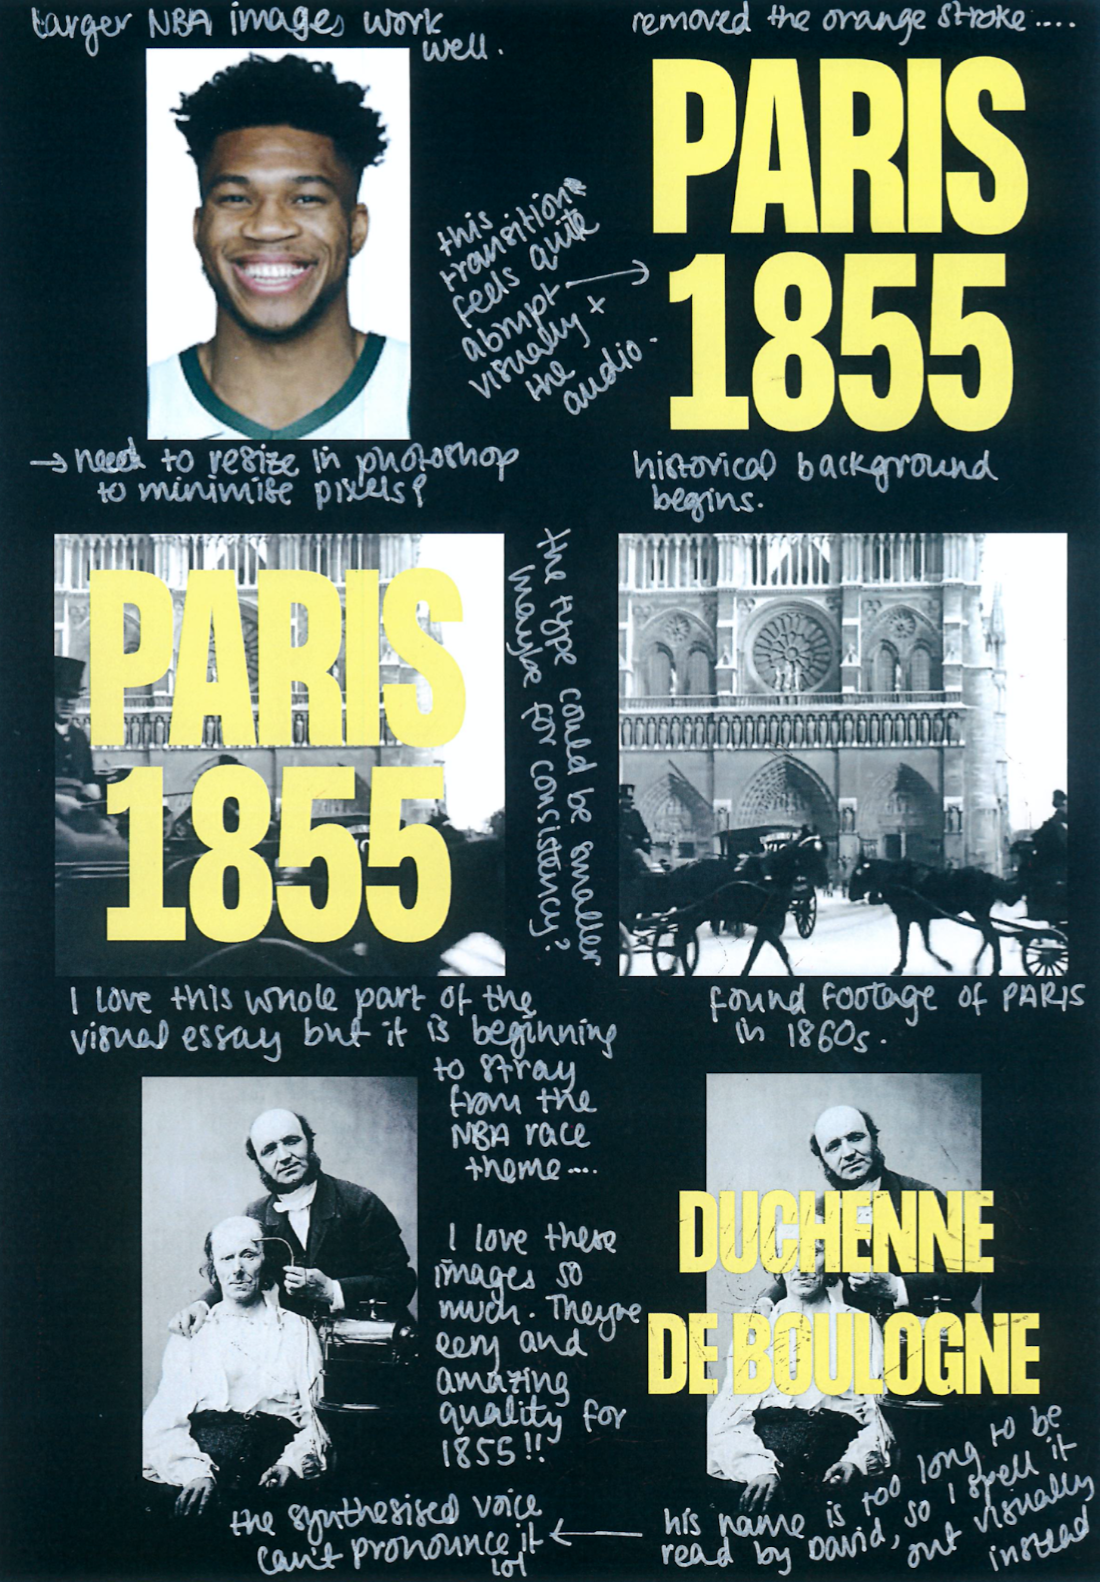 larger NBA images work
well.
removed the orange stroke.....
PARIS
1855
this
transition
feels quite
abrupt
visually +
the
audio.
→ need to resize in photoshop
to minimise pixels?
historical background
begins.
PARIS
1855
the type could be smaller
maybe for consistency?
I love this whole part of the
visual essay but it is beginning
to stray
from the
NBA race
theme....
found footage of PARIS
in 1860s.
I love these
images so
much. Theyre
eery and
amazing
quality for
1855!!
DUCHENNE
DE BOULOGNE
his name is too long to be
read by David, so I spell it
out visually
instead
the synthesised voice
can't pronounce it
lol